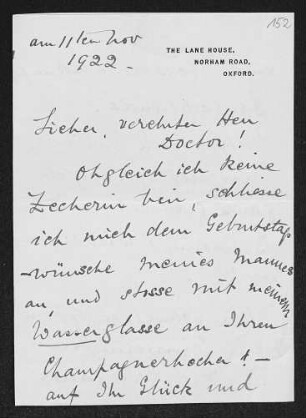 152
am 11ten Nov
1922.
THE LANE HOUSE,
NORHAM ROAD,
OXFORD.
Lieber, verehrter Herr
Doctor!
Obgleich ich keine
Zecherin bin, schliesse
ich mich dem Geburtstags
-wünsche meines Mannes
an, und stosse mit meinem
Wasserglasse an Ihren
Champagnerbecher! –
auf Ihr Glück und